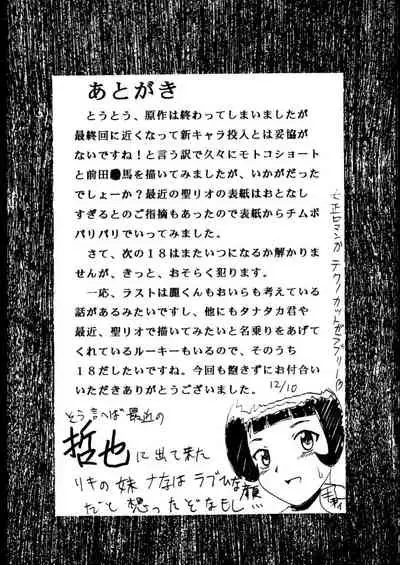 あとがき
とうとう、原作は終わってしまいましたが
最終回に近くなって新キャラ投入とは妥協が
ないですね!と言う訳で久々にモトコショート
と前田●馬を描いてみましたが、いかがだった
でしょーか?最近の聖リオの表紙はおとなし
すぎるとのご指摘もあったので表紙からチムポ
バリバリでいってみました。
さて、次の18はまたいつになるか解かりま
せんが、きっと、おそらく犯ります。
一応、ラストは麗くんもおいらも考えている
話があるみたいですし、他にもタナタカ君や
最近、聖リオで描いてみたいと名乗りをあげて
くれているルーキーもいるので、そのうち
18だしたいですね。今回も飽きずにお付合い
いただきありがとうございました。
12/10
そう言へば最近の
哲也に出て来た
リキの妹 ナナは ラブひな顔
だと 想ったぞなもし!!!
テクノカットがラブリー